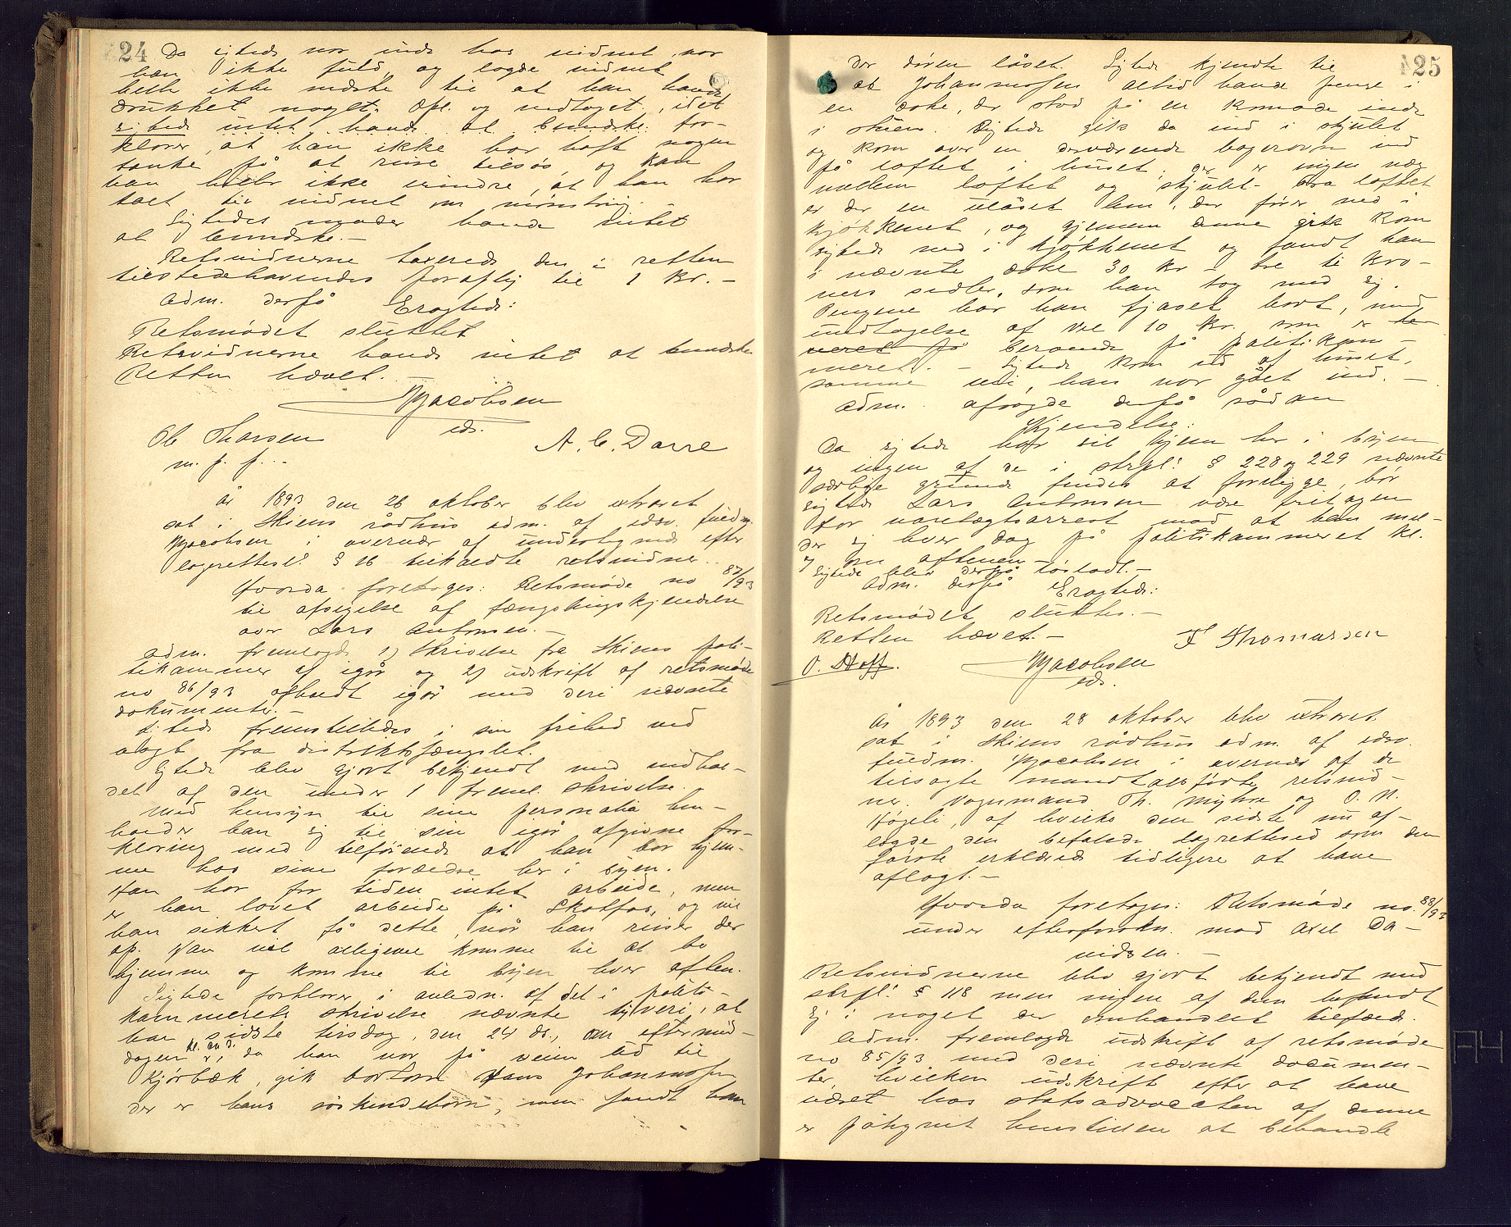 24
Da sigtede var inde hos vidnet, var
han ikke fuld, og lagde vidnet
heller ikke mærke til at han havde
drukket noget. Opl. og vedtaget, idet
sigtede intet havde at bemærke. for-
klarer, at han ikke har havt nogen
tanke på at reise tilsøs, og kan
han heller ikke erindre, at han har
talt til vidnet om mønstring.
Sigtedes moder havde intet
at bemærke.-
Retsvidnerne taxerede den i retten
tilstedehavendes til 1 kr.-
adm. derpå Eragtede:
Retsmødet sluttet
Retsvidnerne havde intet at bemærke
Retten hævet.-
MJacobsen
eds.
Ole Thorsen
m. p. p...
A. C. Darre
År 1893 den 26 oktober blev extraret
sat i Skiens rådhus adm. af edsv. fuldm.
MJacobsen i overvær af undertegnede efter
lagrettesl. § 16 tilkaldte retsvidner.
Hvorda foretoges: Retsmøde no 87/93
til afsigelse af fængslingskjendelse
over Lars Antonsen.-
adm. fremlagde 1) skrivelse fra Skiens poli-
tikammer af igår og 2) udskrift af retsmøde
no 86/93 afholdt igår med deri nævnte
dokumenter.-
Sigtede fremstilledes i sin frihed ved
vagt fra distriktsfængslet.
Sigtede blev gjort bekjendt med indhol-
det af den under 1 freml. skrivelse.
Med hensyn til sine personalia hen-
holder han sig til sin igår afgivne for-
klaring med tilføiende at han bor hjem-
me hos sine forældre her i byen.
Han har for tiden intet arbeide, men
er han lovet arbeide på Skotfos, og vil
han sikkert få dette, når han reiser der
op. Han vil alligevel komme til at bo
hjemme og komme til byen hver aften.
Sigtede forklarer i anledn. af det i politi-
kammerets skrivelse nævnte tyveri, at
han sidste tirsdag, den 24 ds., om eftermid-
dagen kl. ca 3., da han var på veien ud til
Kjørbæk, gik bortom Hans Johannessen
der er hans søskendebarn, men fandt han
125
der døren låset. Sigtede kjendte til
at Johannessen altid havde penge i
en æske, der stod på en komode inde
i stuen. Sigtede gik da ind i skjulet
og kom over en derværende bagerovn ind
på loftet i huset, der er ingen væg
mellem loftet og skjulet. Fra loftet
er der en ulåset lem, der fører ned i
kjøkkenet, og gjennem denne gik kom
sigtede ned i kjøkkenet og fandt han
i nævnte æske 30 kr - tre ti kro-
ners sedler, som han tog med sig.
Pengene har han fjaset bort, med
undtagelse af vel 10 kr. som er
beroende på politikam-
meret.- Sigtede kom ud af huset,
samme vei, han var gået ind.-
adm. afsagde derpå sådan
Kjendelse:
Da sigtede har sit hjem her i byen
og ingen af de i strpl. § 228 og 229 nævnte
særlige grunde findes at foreligge, bør
sigtede Lars Antonsen være fritagen
for varetægtsarrest mod at han mel-
der sig hver dag på politikammeret kl.
7 om aftenen.
Sigtede blev derpå løsladt.-
adm. derpå Eragtede:
Retsmødet sluttes.-
Retten hævet.-
F Thomassen
O. Hoff.
MJacobsen
eds.
År 1893 den 28 oktober blev extraret
sat i Skiens rådhus adm. af edsv.
fuldm. MJacobsen i overvær af de
tilsagte mandtalsførte retsvid-
ner, vognmand Th. Myhre og O. N.
Høgeli, af hvilke den sidste nu af-
lagde den befalede lagretteed som den
første erklæred tidligere at have
aflagt.-
Hvorda foretoges: Retsmøde no. 88/93
under efterforskn. mod Axel Da-
vidsen.-
Retsvidnerne blev gjort bekjendt med
strpl. § 118 men ingen af dem befandt
sig i noget der omhandlet tilfæld.
adm. fremlagde udskrift af retsmøde
no 85/93 med deri nævnte documen-
ter, hvilken udskrift efter at have
været hos statsadvocaten af denne
er påtegnet henstillen at behandle